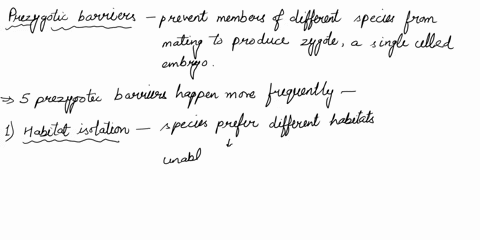 Prezygotic barriers – prevent members of different species from
mating to produce zygote, a single celled
embryo.
⇒ 5 prezygotic barriers happen more frequently –
1) Habitat isolation – species prefer different habitats
↓
unabl